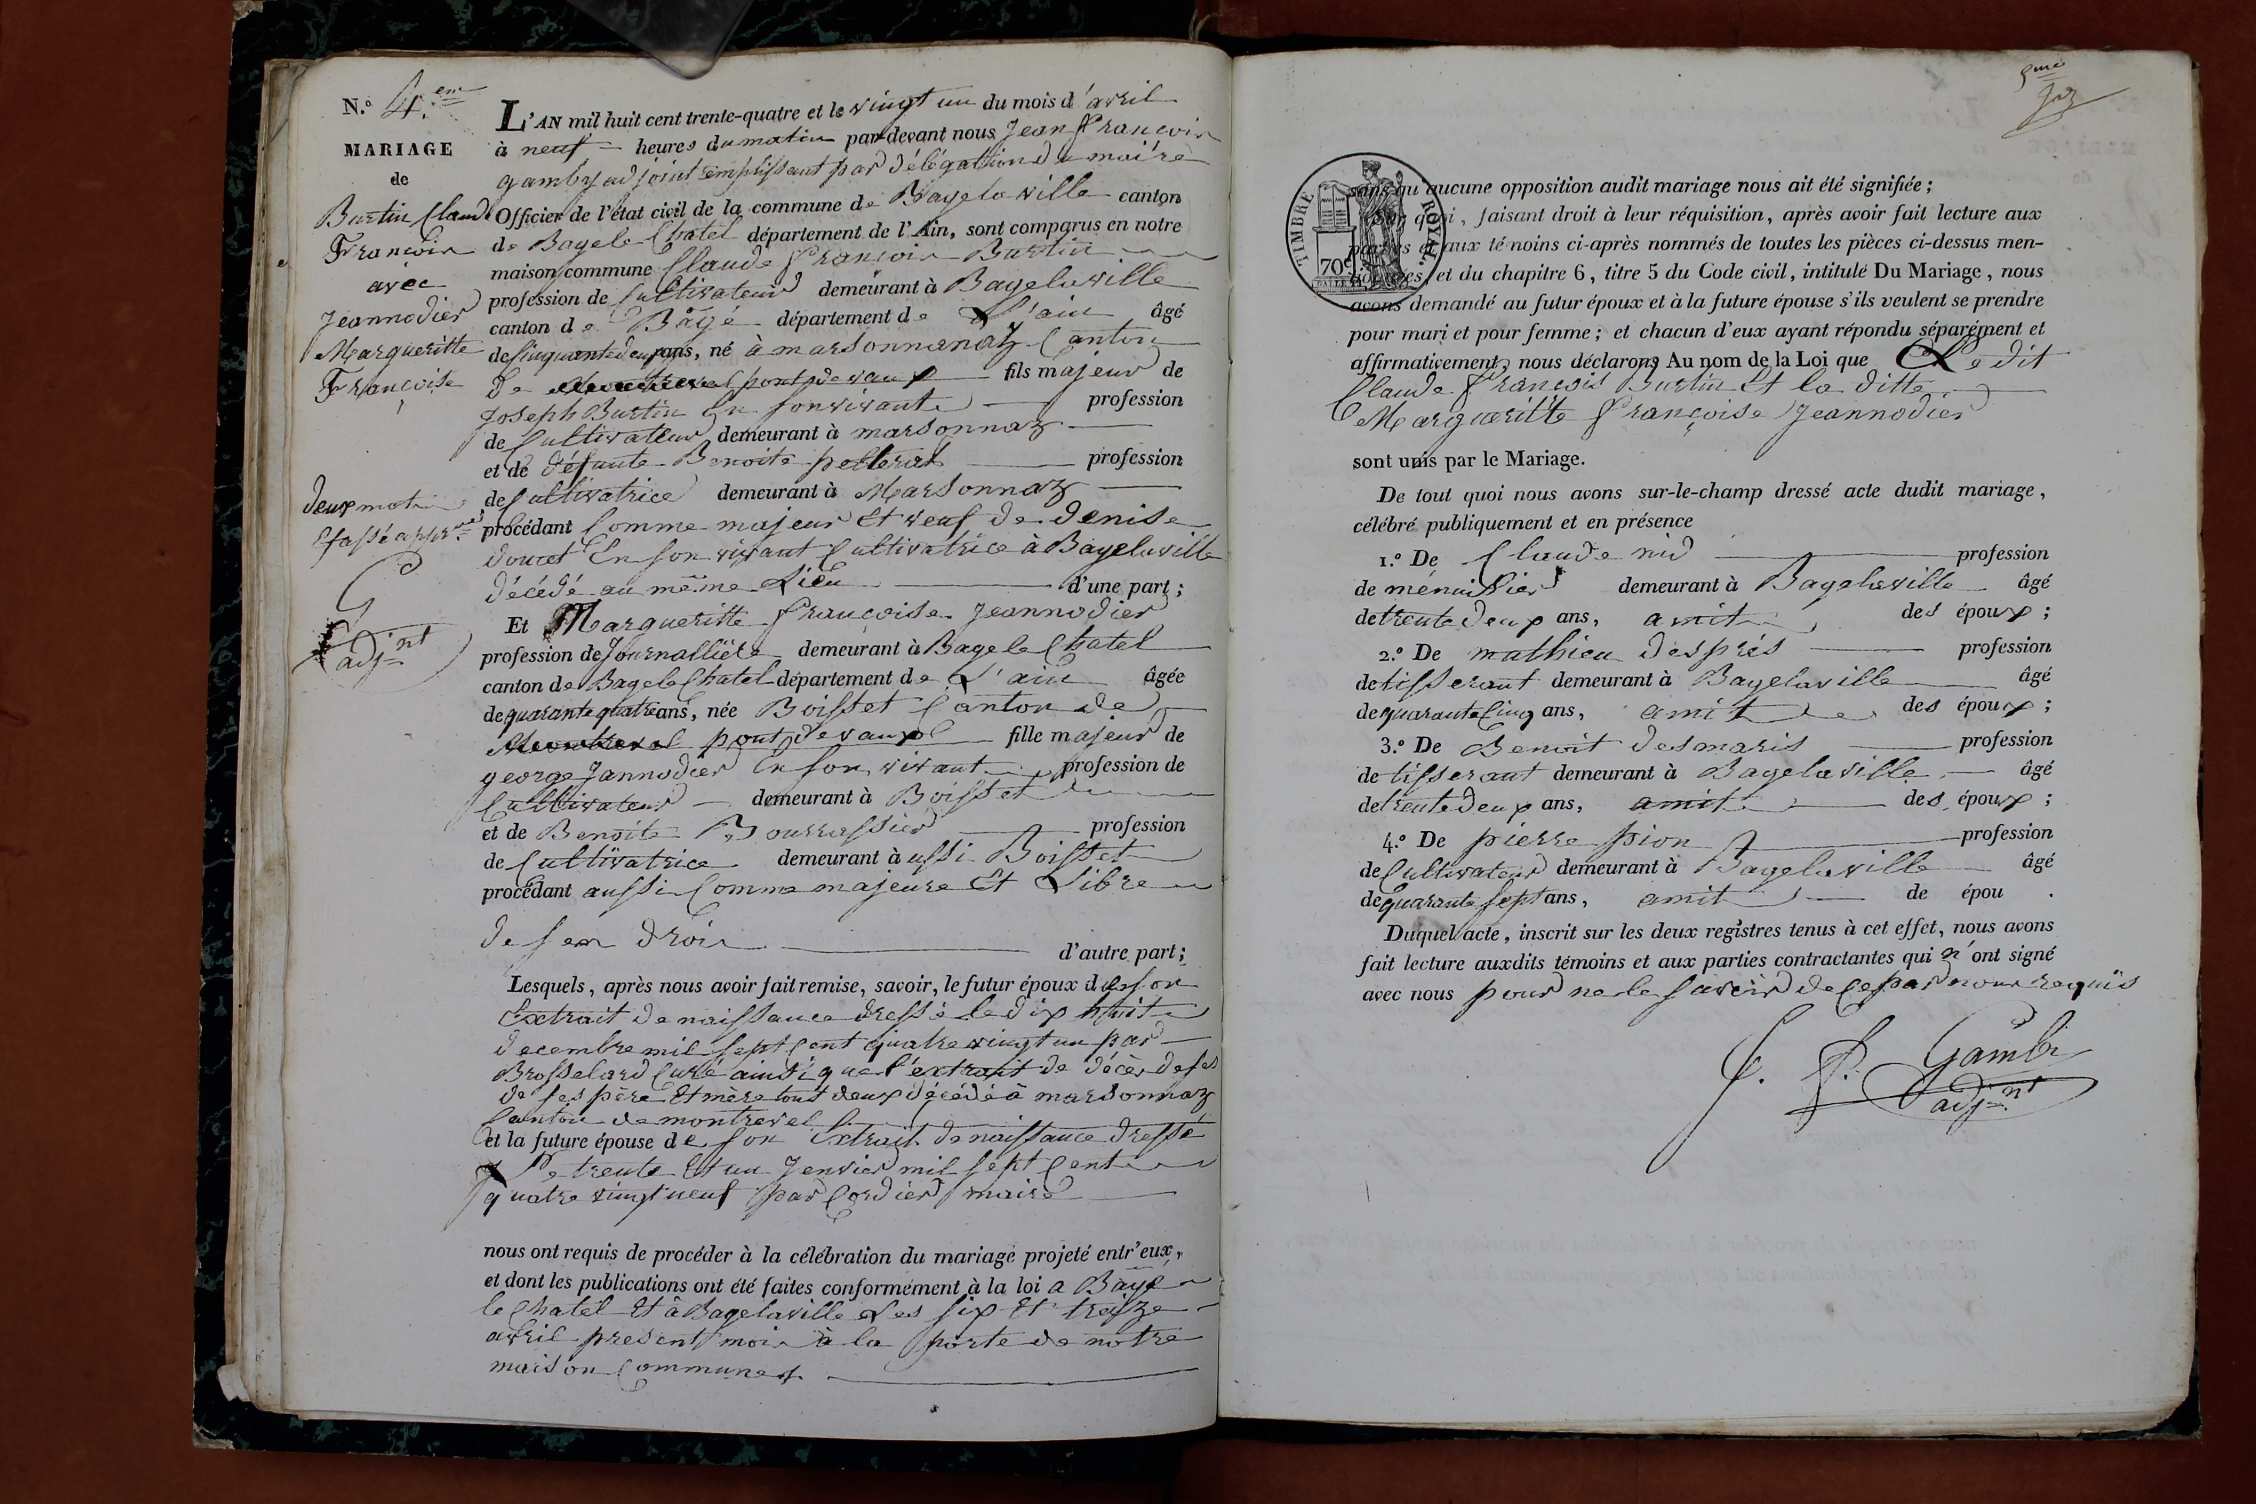 N.° 4.em
MARIAGE
de
Burtin Claude
François
avec
Jeannodier
Margueritte
Françoise
deux mots
effassé appr.
G
adj.nt
L'AN mil huit cent trente-quatre et le vingt un du mois d'avril
à neuf heures du matin par-devant nous Jean François
gamby adjoint remplissant par délégation du maire
Officier de l'état civil de la commune de Bagelaville canton
de Bagele Chatel département de l'Ain, sont comparus en notre
maison commune Claude François Burtin
profession de Cultivateur demeurant à Bagelaville
canton de Bâgé département de L'ain âgé
de Cinquante deux ans, né à marsonnanaz Canton
de pont de vaux fils majeur de
Joseph Burtin En son vivant profession
de Cultivateur demeurant à marsonnaz
et de défunte Benoite pelleras profession
de Cultivatrice demeurant à Marsonnaz
procédant Comme majeur Et veuf de denise
doucet En son vivant Cultivatrice à Bagelaville
décédé au même Lieu d'une part;
Et Margueritte Françoise Jeannodier
profession de Journallière demeurant à Bage le Chatel
canton de Bagele Chatel département de L'ain âgée
de quarante quatre ans, née Boisset Canton de
pont de vaux fille majeur de
george Jannodier En son vivant profession de
Cultivateur demeurant à Boisset
et de Benoite Bourrassier profession
de Cultivatrice demeurant à ussi Boisset
procédant aussi Comme majeure Et Libre
de sen droit d'autre part;
Lesquels, après nous avoir fait remise, savoir, le futur époux de son
Extrait de naissance dressé le dix huit
decembre mil sept Cent quatre vingt un par
Brosselard Curé ainsi que l'extrait de décès de ses
de ses père Et mère tout deux décédé à marsonnaz
Canton de montrevel
et la future épouse de son Extrait de naissance dressé
Le trente Et un Jenvier mil sept Cent
quatre vingt neuf par Cordier maire
nous ont requis de procéder à la célébration du mariage projeté entr'eux,
et dont les publications ont été faites conformément à la loi a Bagé
le Chatel Et à Bagelaville Les six Et treize
avril present mois à la porte de notre
maison Commune
5me
TIMBRE ROYAL.
70c
sans qu'aucune opposition audit mariage nous ait été signifiée;
Sur quoi, faisant droit à leur réquisition, après avoir fait lecture aux
parties et aux témoins ci-après nommés de toutes les pièces ci-dessus men-
tionnées, et du chapitre 6, titre 5 du Code civil, intitulé Du Mariage, nous
avons demandé au futur époux et à la future épouse s'ils veulent se prendre
pour mari et pour femme; et chacun d'eux ayant répondu séparément et
affirmativement, nous déclarons Au nom de la Loi que Le dit
Claude François Burtin Et la ditte
Margueritte Françoise Jeannodier
sont unis par le Mariage.
De tout quoi nous avons sur-le-champ dressé acte dudit mariage,
célébré publiquement et en présence
1.° De Claude nid profession
de ménuisier demeurant à Bagelaville âgé
de trente deux ans, amit des époux;
2.° De mathieu després profession
de tisserant demeurant à Bagelaville âgé
de quarante Cinq ans, amit des époux;
3.° De Benoit desmaris profession
de tisserant demeurant à Bagelaville âgé
de trente deux ans, amit des époux;
4.° De pierre pion profession
de Cultivateur demeurant à Bagelaville âgé
de quarante sept ans, amit de épou .
Duquel acte, inscrit sur les deux registres tenus à cet effet, nous avons
fait lecture auxdits témoins et aux parties contractantes qui n'ont signé
avec nous pour ne le savoir de Ce par nous requis
J. f. Gambi
adj.nt